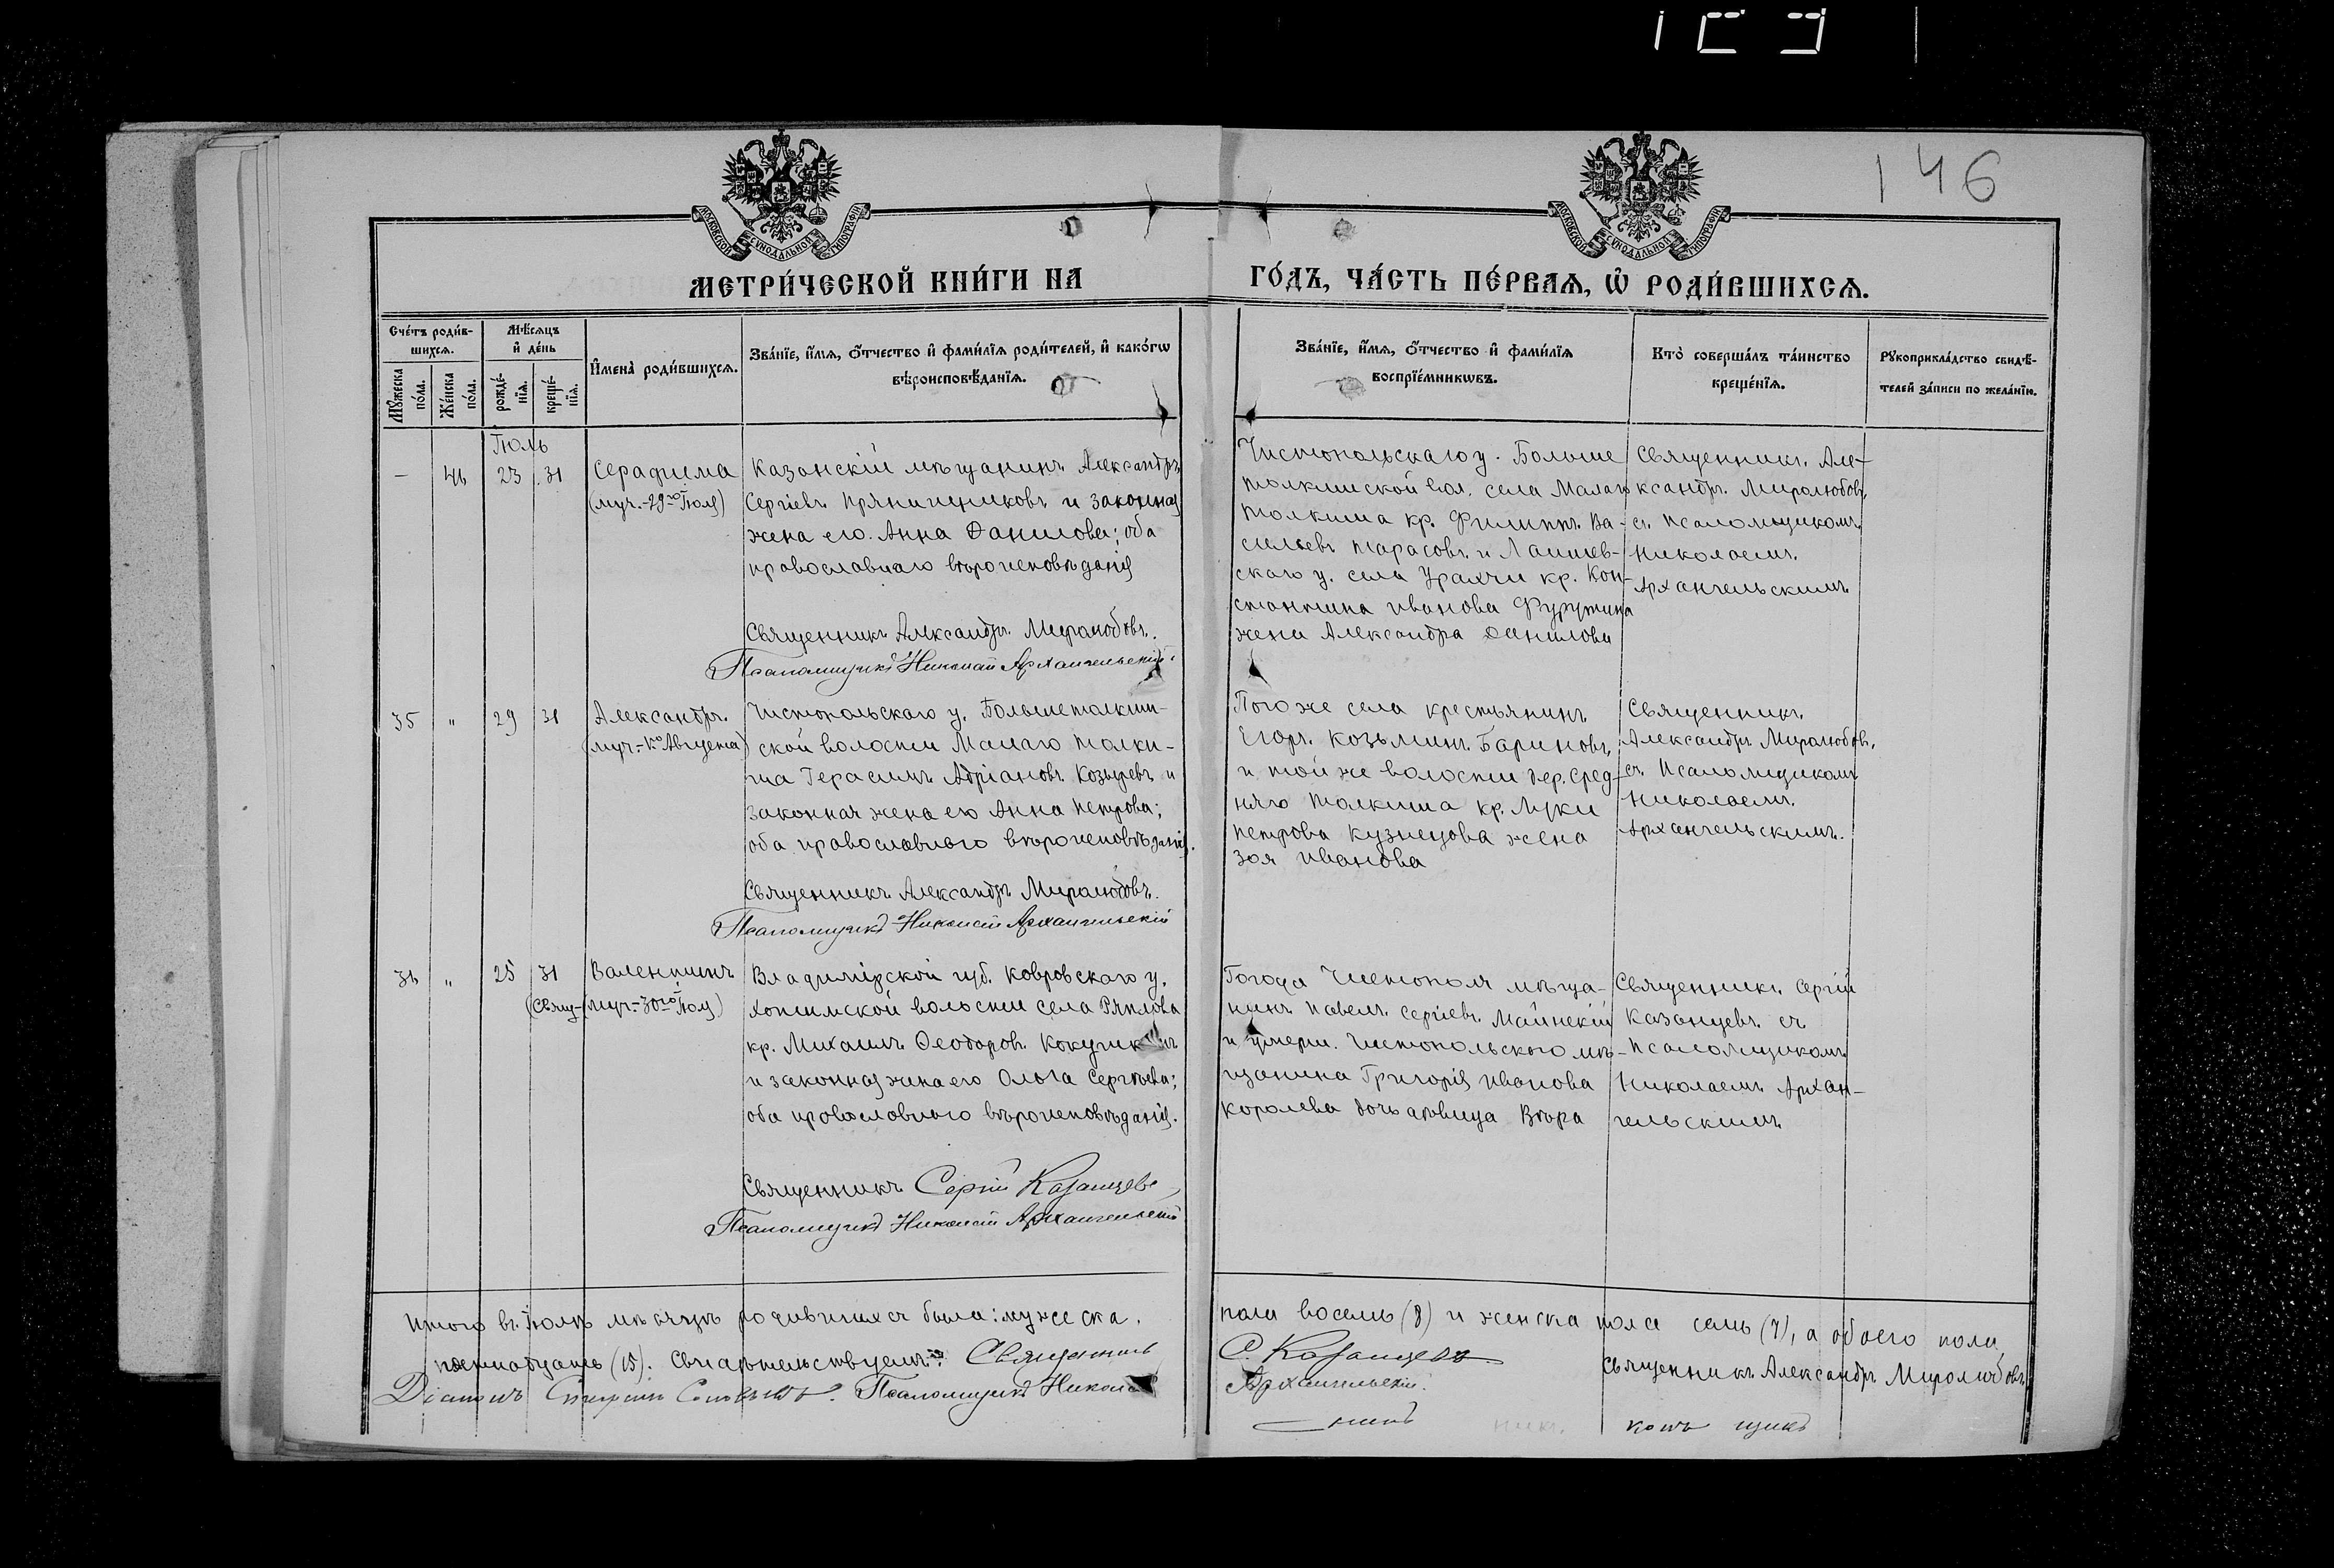 146
МЕТРИ́ЧЕСКОЙ КНИ́ГИ НА ГО́ДЪ, ЧА́СТЬ ПЕ́РВАѦ, Ѿ РОДИ́ВШИХСѦ.
Сче́тъ роди́в-
шихсѧ.
Мѣ́сѧцъ
и҆ де́нь
Мꙋ́жеска по́ла.
Же́нска по́ла.
рожде́-
нїѧ.
креще́-
нїѧ.
И҆мена̀ роди́вшихсѧ.
Зва́нїе, и҆́мѧ, ѻ҆́тчество и҆ фами́лїѧ роди́телей, и҆ како́гѡ
вѣроисповѣ́данїѧ.
Зва́нїе, и҆́мѧ, ѻ҆́тчество и҆ фами́лїѧ
воспрїе́мникѡвъ.
Кто̀ соверша́лъ та́инство
креще́нїѧ.
Рꙋкоприкла́дство свидѣ́-
телей за́писи по жела́нїю.
Іюль
— 46 23 31
Серафима
(муч.-29го Іюля)
Казанскій мѣщанинъ Александръ
Сергіевъ Пряничниковъ и законная
жена его Анна Данилова; оба
православнаго вѣроисповѣданія
Священникъ Александръ Миролюбовъ.
Псаломщикъ Николай Архангельскій
Чистопольскаго у. Больше
толкишской вол. села Малаго
Толкиша кр. Филиппъ Ва-
сильевъ Тарасовъ и Лаишев-
скаго у. села Урахчи кр. Кон-
стантина Иванова Фурутина
жена Александра Данилова
Священникъ Але-
ксандръ Миролюбовъ,
съ псаломщикомъ
Николаемъ
Архангельскимъ
35 " 29 31
Александръ
(муч.-1го Августа)
Чистопольскаго у. Большетолкиш-
ской волости Малаго Толки-
ша Герасимъ Адріановъ Козыревъ и
законная жена его Анна Петрова;
оба православнаго вѣроисповѣданія.
Священникъ Александръ Миролюбовъ.
Псаломщикъ Николай Архангельскій
Того же села крестьянинъ
Егоръ Козьминъ Бариновъ,
и той же волости дер. Сред-
няго Толкиша кр. Луки
Петрова Кузнецова жена
Зоя Иванова
Священникъ
Александръ Миролюбовъ,
съ псаломщикомъ
Николаемъ
Архангельскимъ.
36 " 25 31
Валентинъ
(Свящ-муч-30го Іюля)
Владимірской губ. Ковровскаго у.
Хотимской волости села
кр. Михаилъ Ѳеодоровъ
и законная жена его Ольга Сергѣева;
оба православнаго вѣроисповѣданія.
Священникъ Сергій Казанцевъ
Псаломщикъ Николай Архангельскій
Города Чистополя мѣща-
нинъ Павелъ Сергіевъ Маинскій
и умерш. Чистопольскаго мѣ-
щанина Григорія Иванова
Королева дочь дѣвица Вѣра
Священникъ Сергій
Казанцевъ съ
псаломщикомъ
Николаемъ Архан-
гельскимъ
Итого въ Іюлѣ мѣсяцѣ родившихся было: мужеска пола восемь (8) и женска пола семь (7), а обоего пола
пятнадцать (15). Свидѣтельствуемъ: Священникъ С. Казанцевъ Священникъ Александръ Миролюбовъ
Діаконъ Псаломщикъ Николай Архангельскій.
никъ комъ щикъ